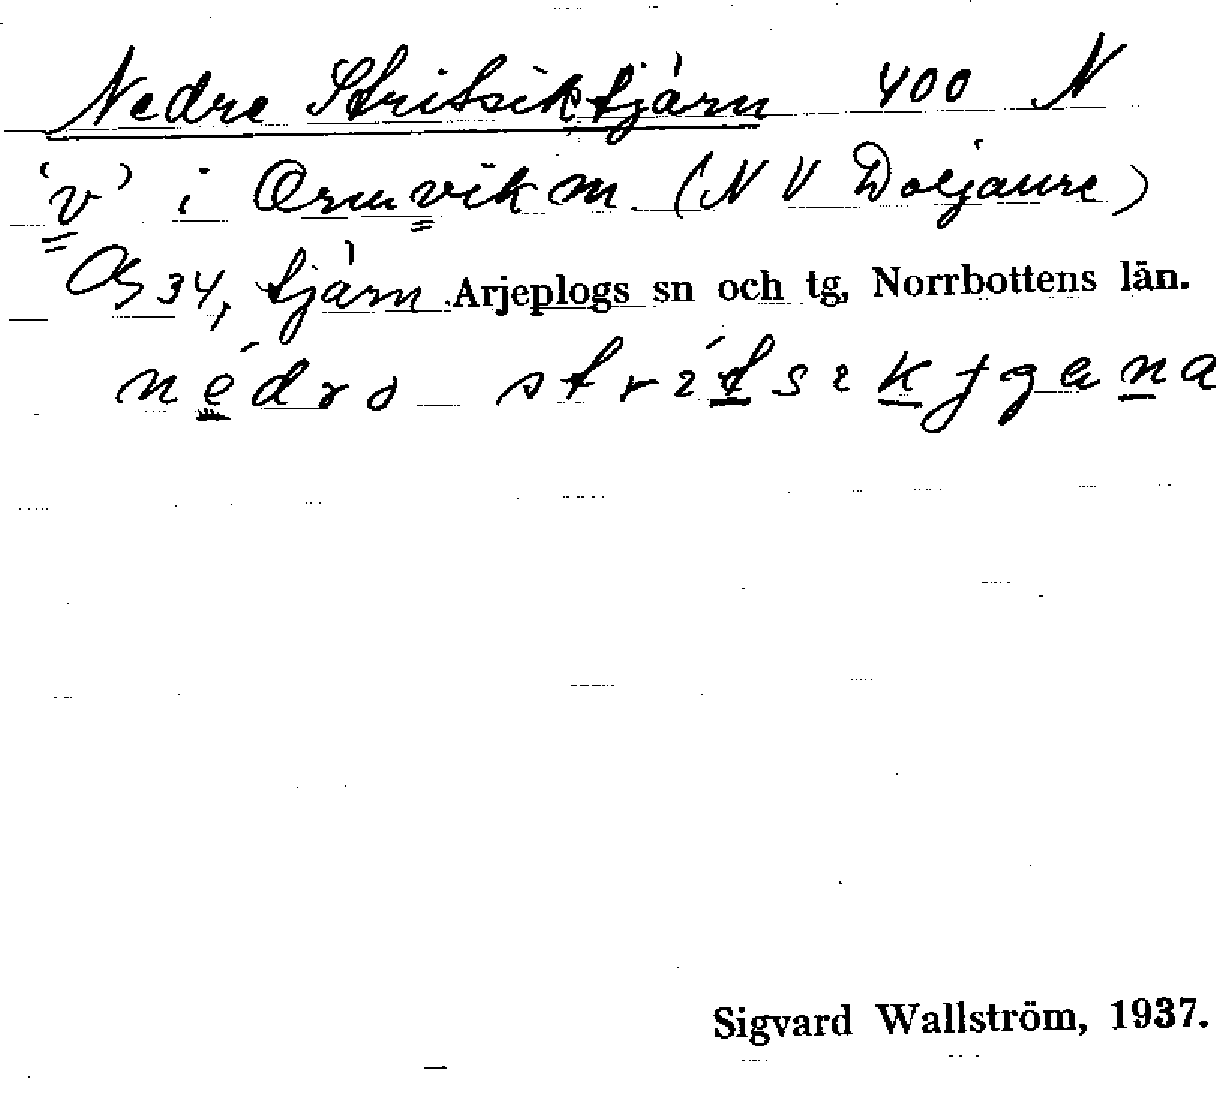 Nedre Stritsiktjärn 400 N
'v' i Ormvik m (NV Doljaure)
34, tjärn Arjeplogs sn och tg, Norrbottens län.
Sigvard Wallström, 1937.